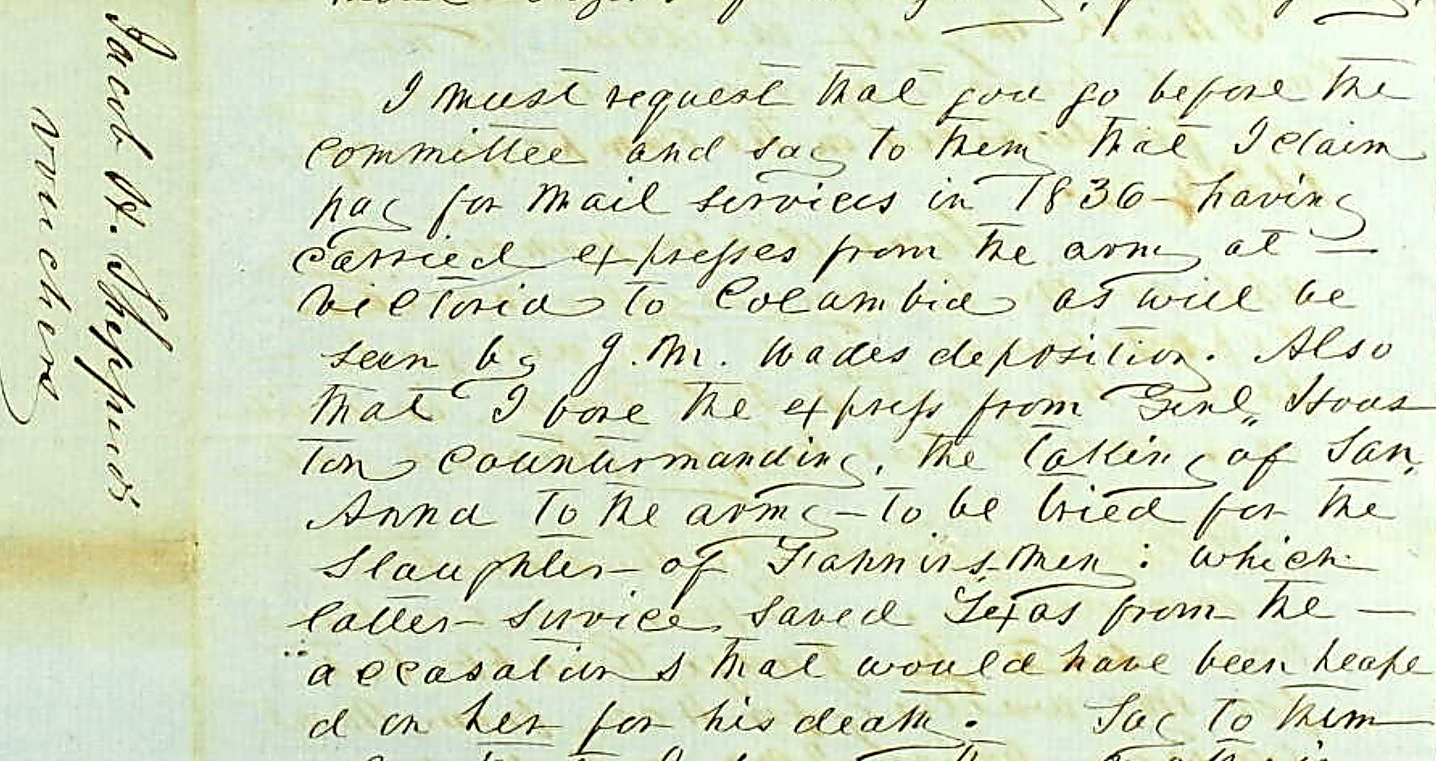 I must request that you go before the
committee and say to them that I claim
pay for mail services in 1836 - having
carried expresses from the army at —
Victoria to Columbia as will be
seen by J. M. Wades deposition. Also
that I bore the express from Genl,, Hous
ton countermanding, the taking of San,
Anna to the army - to be tried for the
slaughter of Fannins men: which
latter service, saved Texas from the —
accusations that would have been heape
d on her for his death. Say to them
Jacob H. Shepperd
vouchers